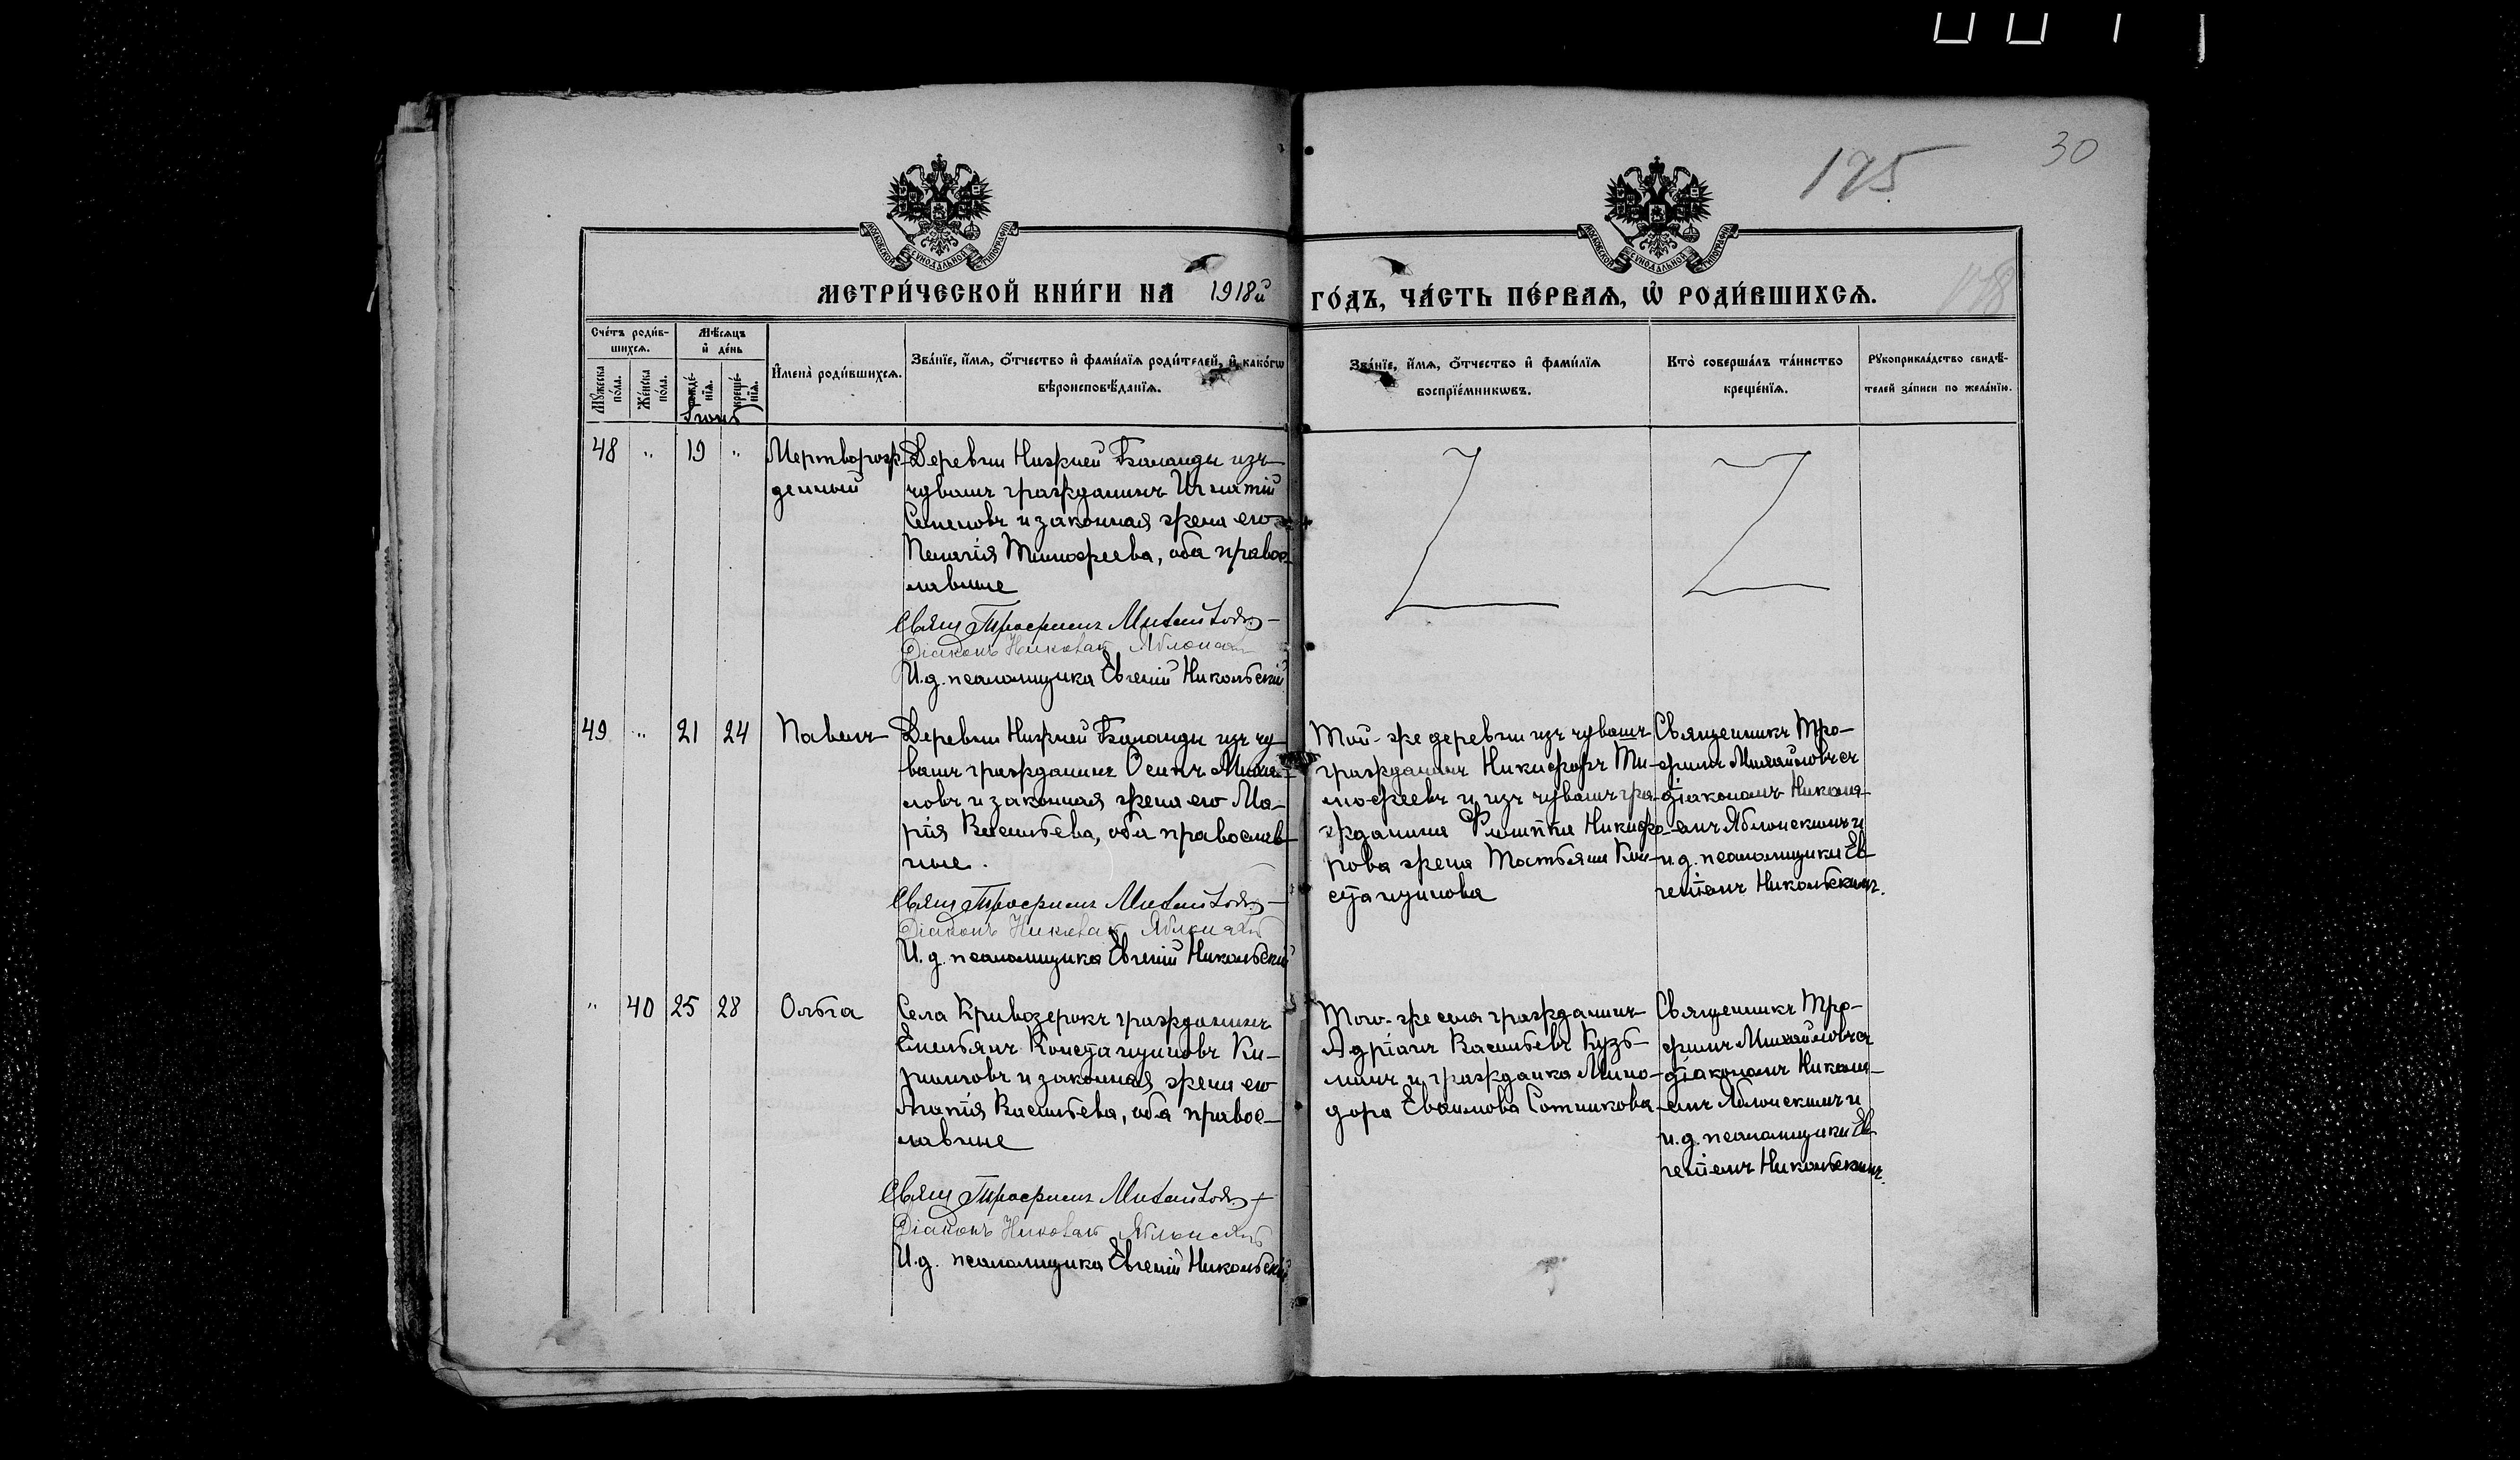 175
30
МОСКОВСКОЙ СѴНОДАЛЬНОЙ ТИПОГРАФІИ
МОСКОВСКОЙ СѴНОДАЛЬНОЙ ТИПОГРАФІИ
МЕТРИ́ЧЕСКОЙ КНИ́ГИ НА 1918й
ГО́ДЪ, ЧА́СТЬ ПЕ́РВАѦ, Ѡ҆ РОДИ́ВШИХСѦ.
178
Сче́тъ роди́в-
шихсѧ.
Мѣ́сѧцъ
и҆ де́нь
Мꙋ́жеска
по́ла.
Же́нска
по́ла.
рожде́-
нїѧ.
креще́-
нїѧ.
И҆мена̀ роди́вшихсѧ.
Зва́нїе, и҆́мѧ, ѻ҆́тчество и҆ фами́лїѧ роди́телей, и҆ како́гѡ
вѣроисповѣ́данїѧ.
Зва́нїе, и҆́мѧ, ѻ҆́тчество и҆ фами́лїѧ
воспрїе́мникѡвъ.
Кто̀ соверша́лъ та́инство
креще́нїѧ.
Рꙋкоприкла́дство свидѣ́-
телей за́писи по жела́нїю.
Іюнь
48 " 19 "
Мертворож-
денный
Деревни Нижней Баланды изъ
чувашъ гражданинъ Игнатій
Семеновъ и законная жена его
Пелагія Тимофеева, оба правос-
лавные
Свящ Трофимъ Михайловъ
Діаконъ Николай Яблонскій
И.д. псаломщика Евгеній Никольскій
49 " 21 24
Павелъ
Деревни Нижней Баланды изъ чу-
вашъ гражданинъ Осипъ
ловъ и законная жена его Ма-
рія Васильева, оба православ-
ные.
Свящ Трофимъ Михайловъ
Діаконъ Николай Яблонскій
И.д. псаломщика Евгеній Никольскій
Той-же деревни изъ чувашъ
гражданинъ Никифоръ Ти-
мофеевъ и изъ чувашъ гра-
жданина Филиппа Никифо-
рова жена Татьяна Кон-
стантинова
Священникъ Тро-
фимъ Михайловъ съ
діакономъ Никола-
емъ Яблонскимъ и
и.д. псаломщика Ев-
геніемъ Никольскимъ.
" 40 25 28
Ольга
Села Кривозерокъ гражданинъ
Емельянъ Константиновъ Ки-
рилловъ и законная жена его
Агапія Васильева, оба правос-
лавные
Свящ Трофимъ Михайловъ
Діаконъ Николай Яблонскій
И.д. псаломщика Евгеній Никольскій
Того-же села гражданинъ
Адріанъ Васильевъ Кузь-
минъ и гражданка Мино-
дора Сотникова
Священникъ Тро-
фимъ Михайловъ съ
діакономъ Никола-
емъ Яблонскимъ и
и.д. псаломщика Ев-
геніемъ Никольскимъ.